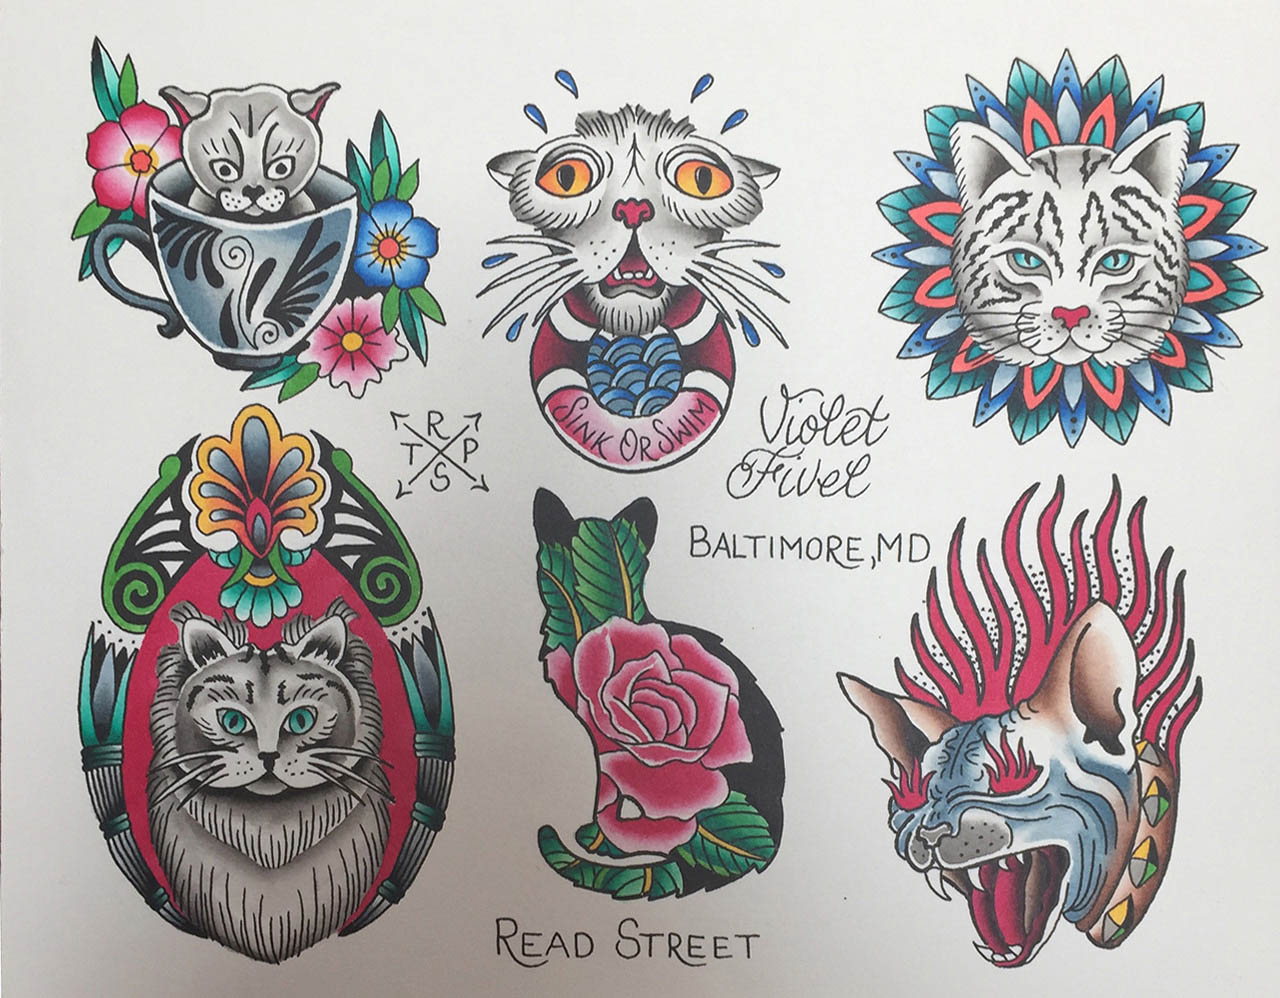 SINK OR SWIM
Violet
Fivel
R
T P
S
BALTIMORE, MD
READ STREET